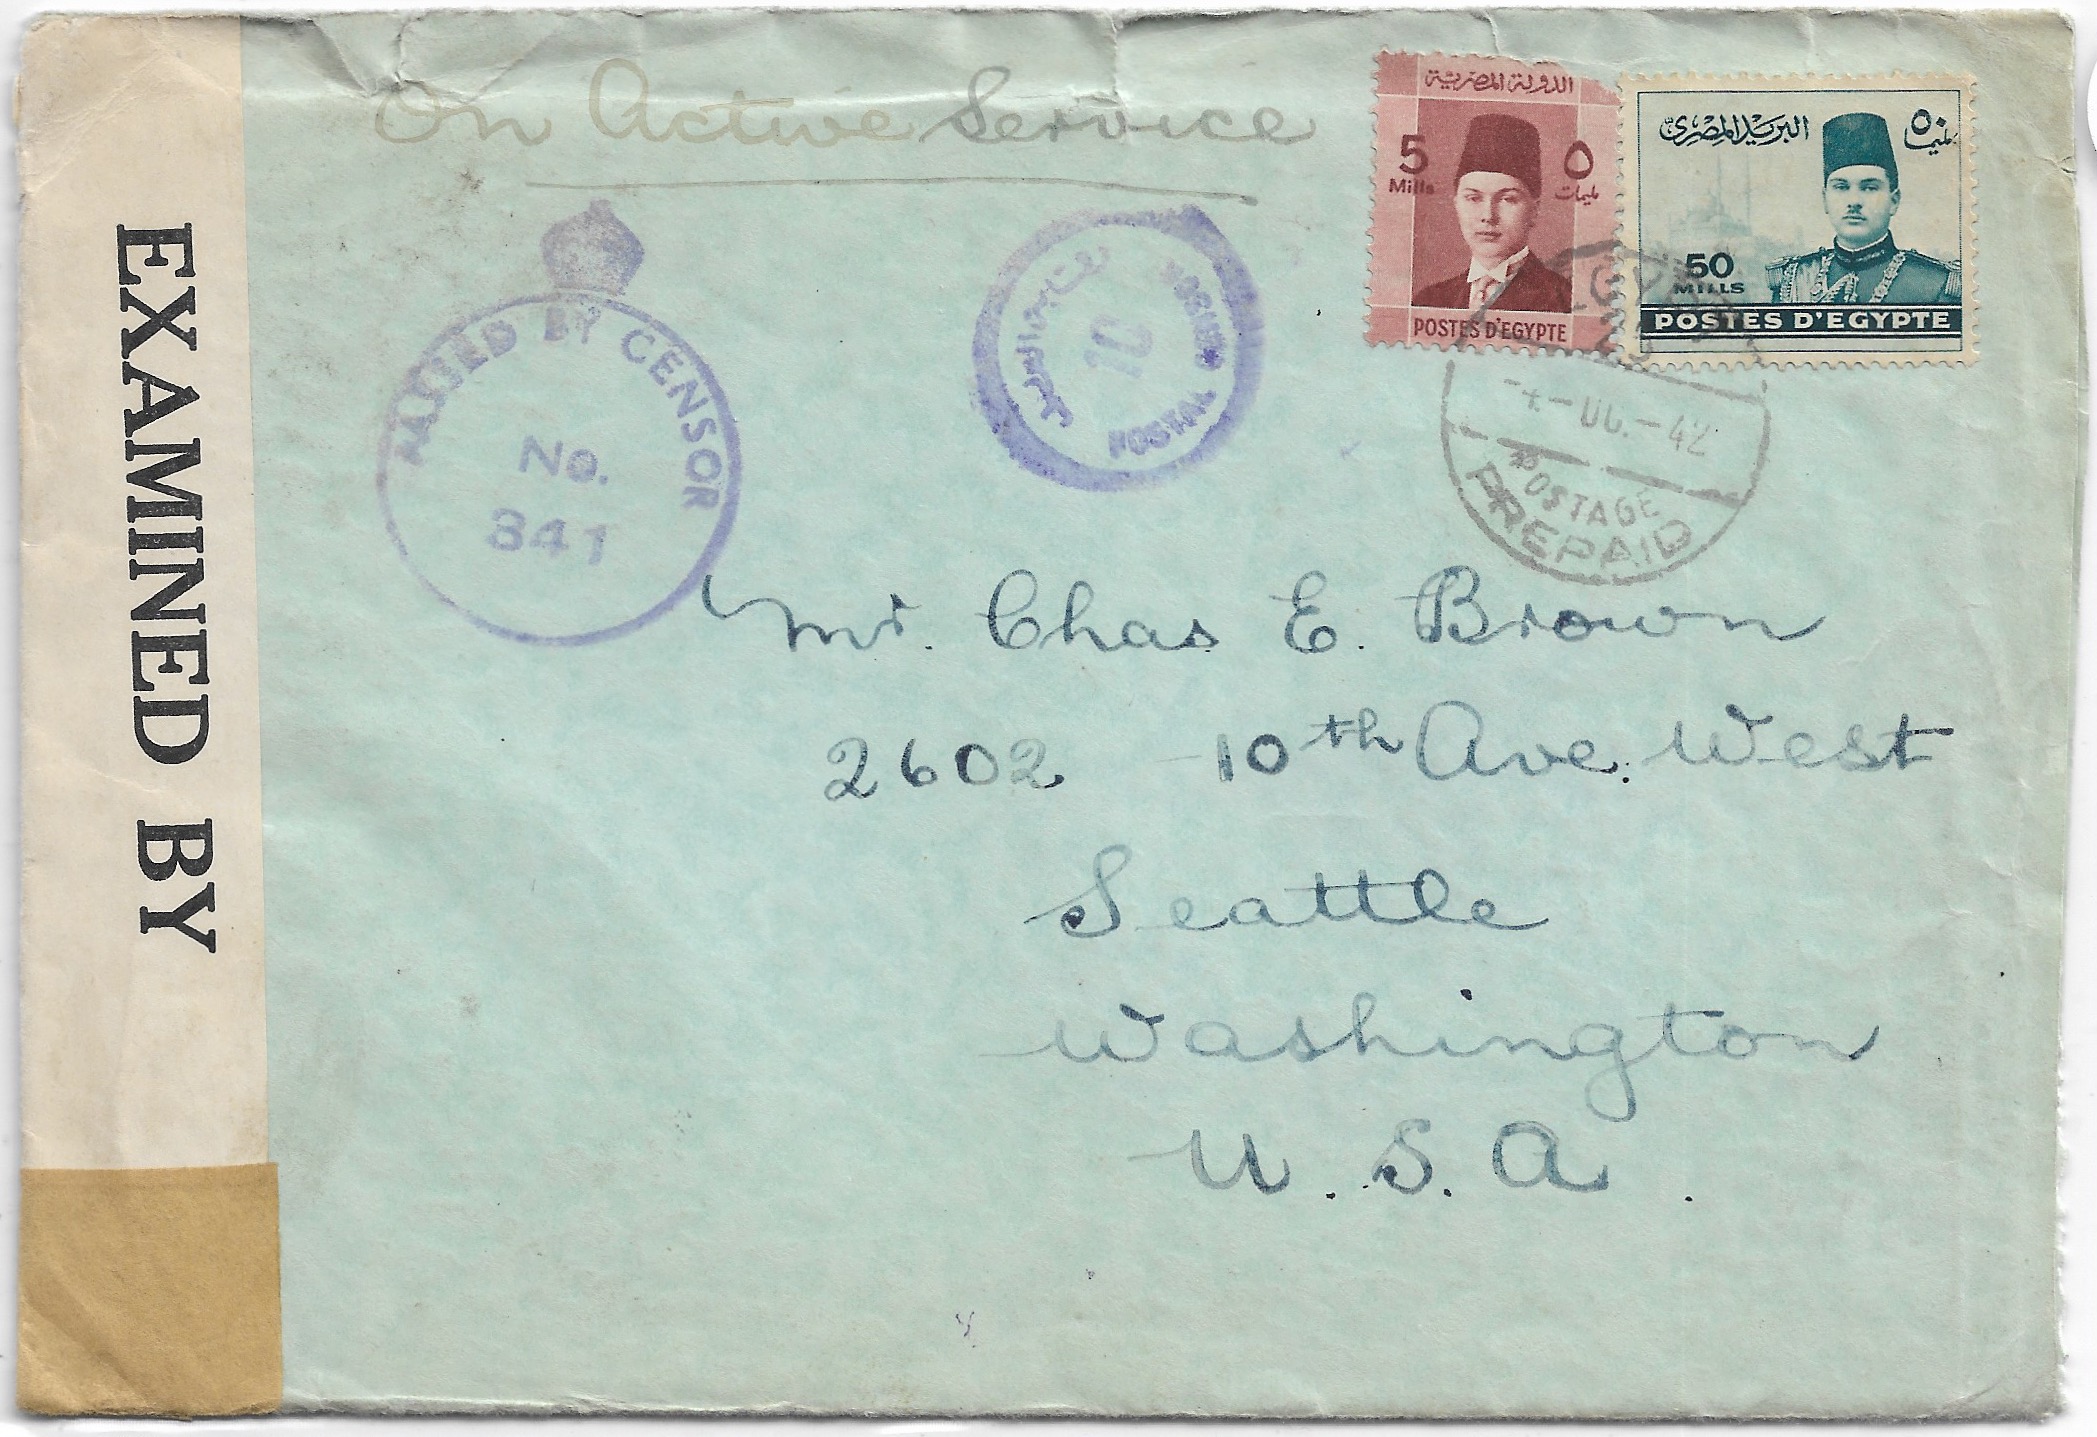 On Active Service
EXAMINED BY
PASSED BY CENSOR
No.
341
POSTAL CENSOR
الدولة المصرية
5 ٥
Mills مليمات
POSTES D'EGYPTE
البريد المصرى ٥٠
مليمًا
50
MILLS
POSTES D'EGYPTE
EGYPT
42
POSTAGE
PREPAID
Mr. Chas E. Brown
2602 10th Ave. West
Seattle
Washington
U.S.A.